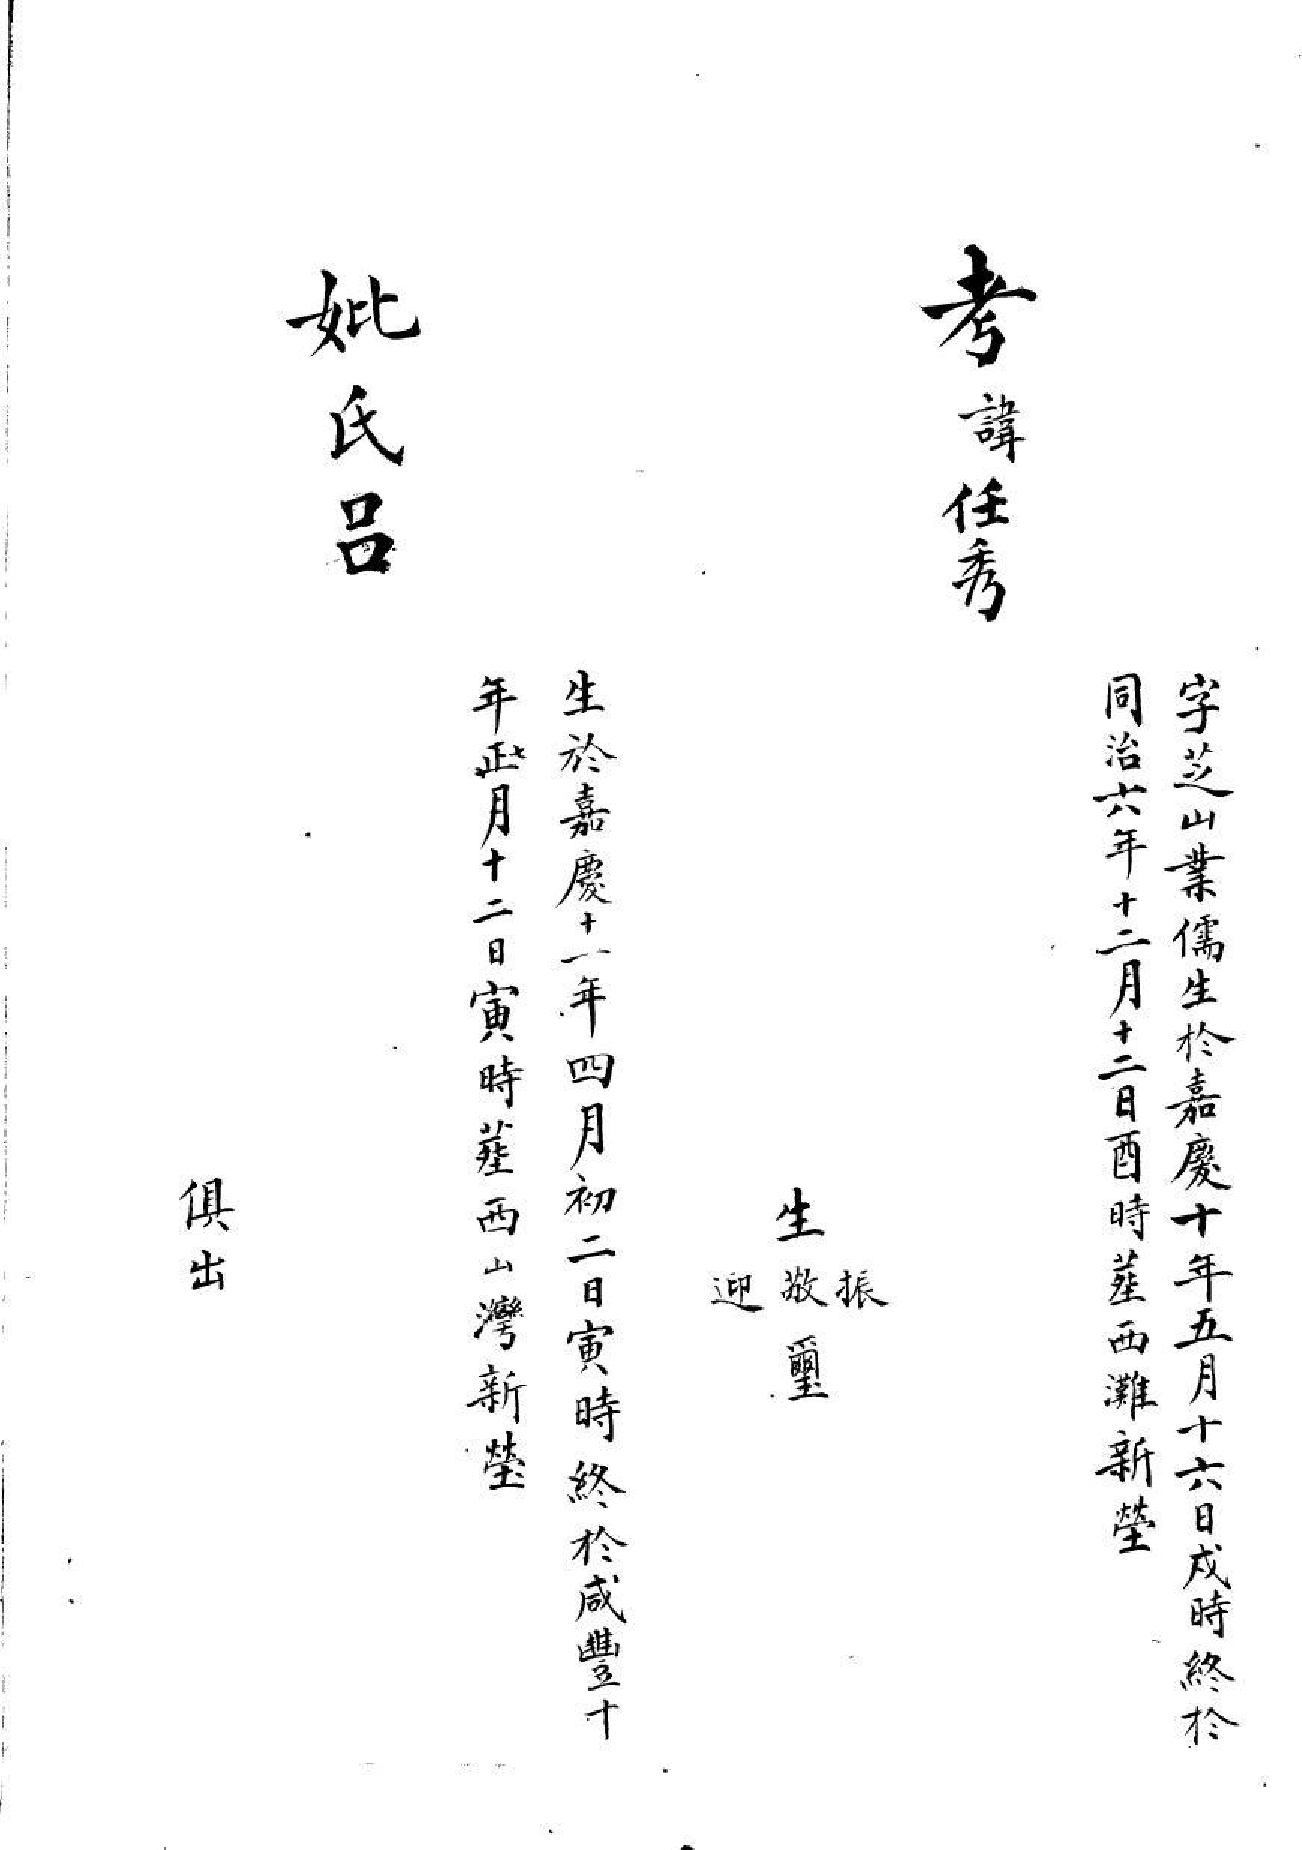 考諱任秀
字芝山業儒生於嘉慶十年五月十六日戍時終於
同治六年十二月十二日酉時塟西灘新塋
生
振
敬
迎
璽
妣氏呂
生於嘉慶十一年四月初二日寅時終於咸豐十
年正月十二日寅時塟西山灣新塋
俱出